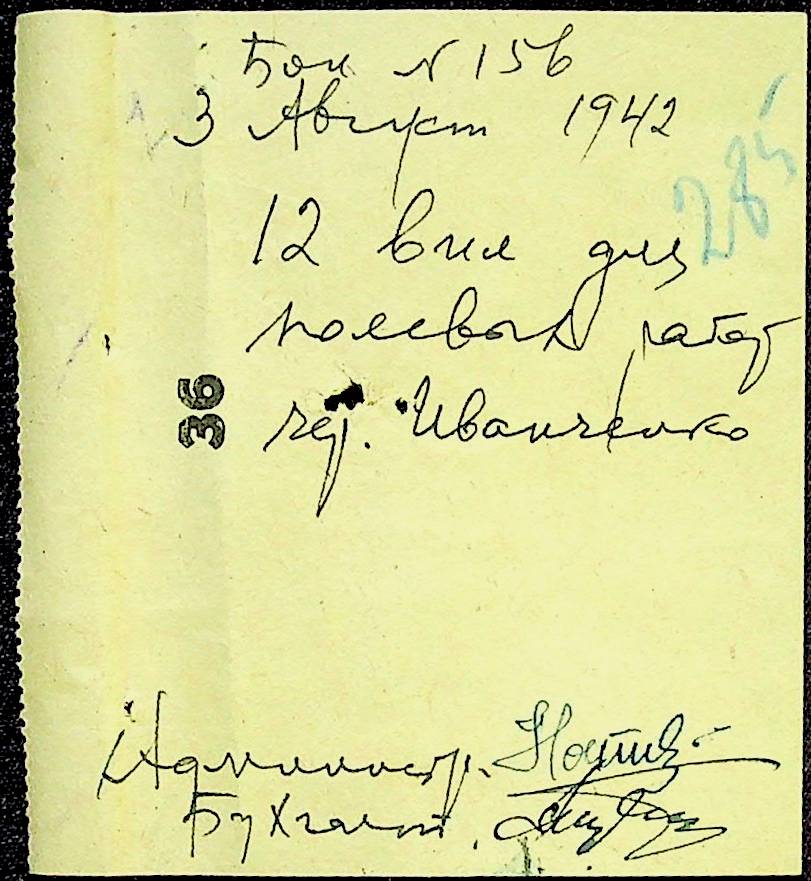 Бон № 156
3 Август 1942
285
12 вил для
полевых работ
чер. Иванченко
36
Администр.
Бухгалт.